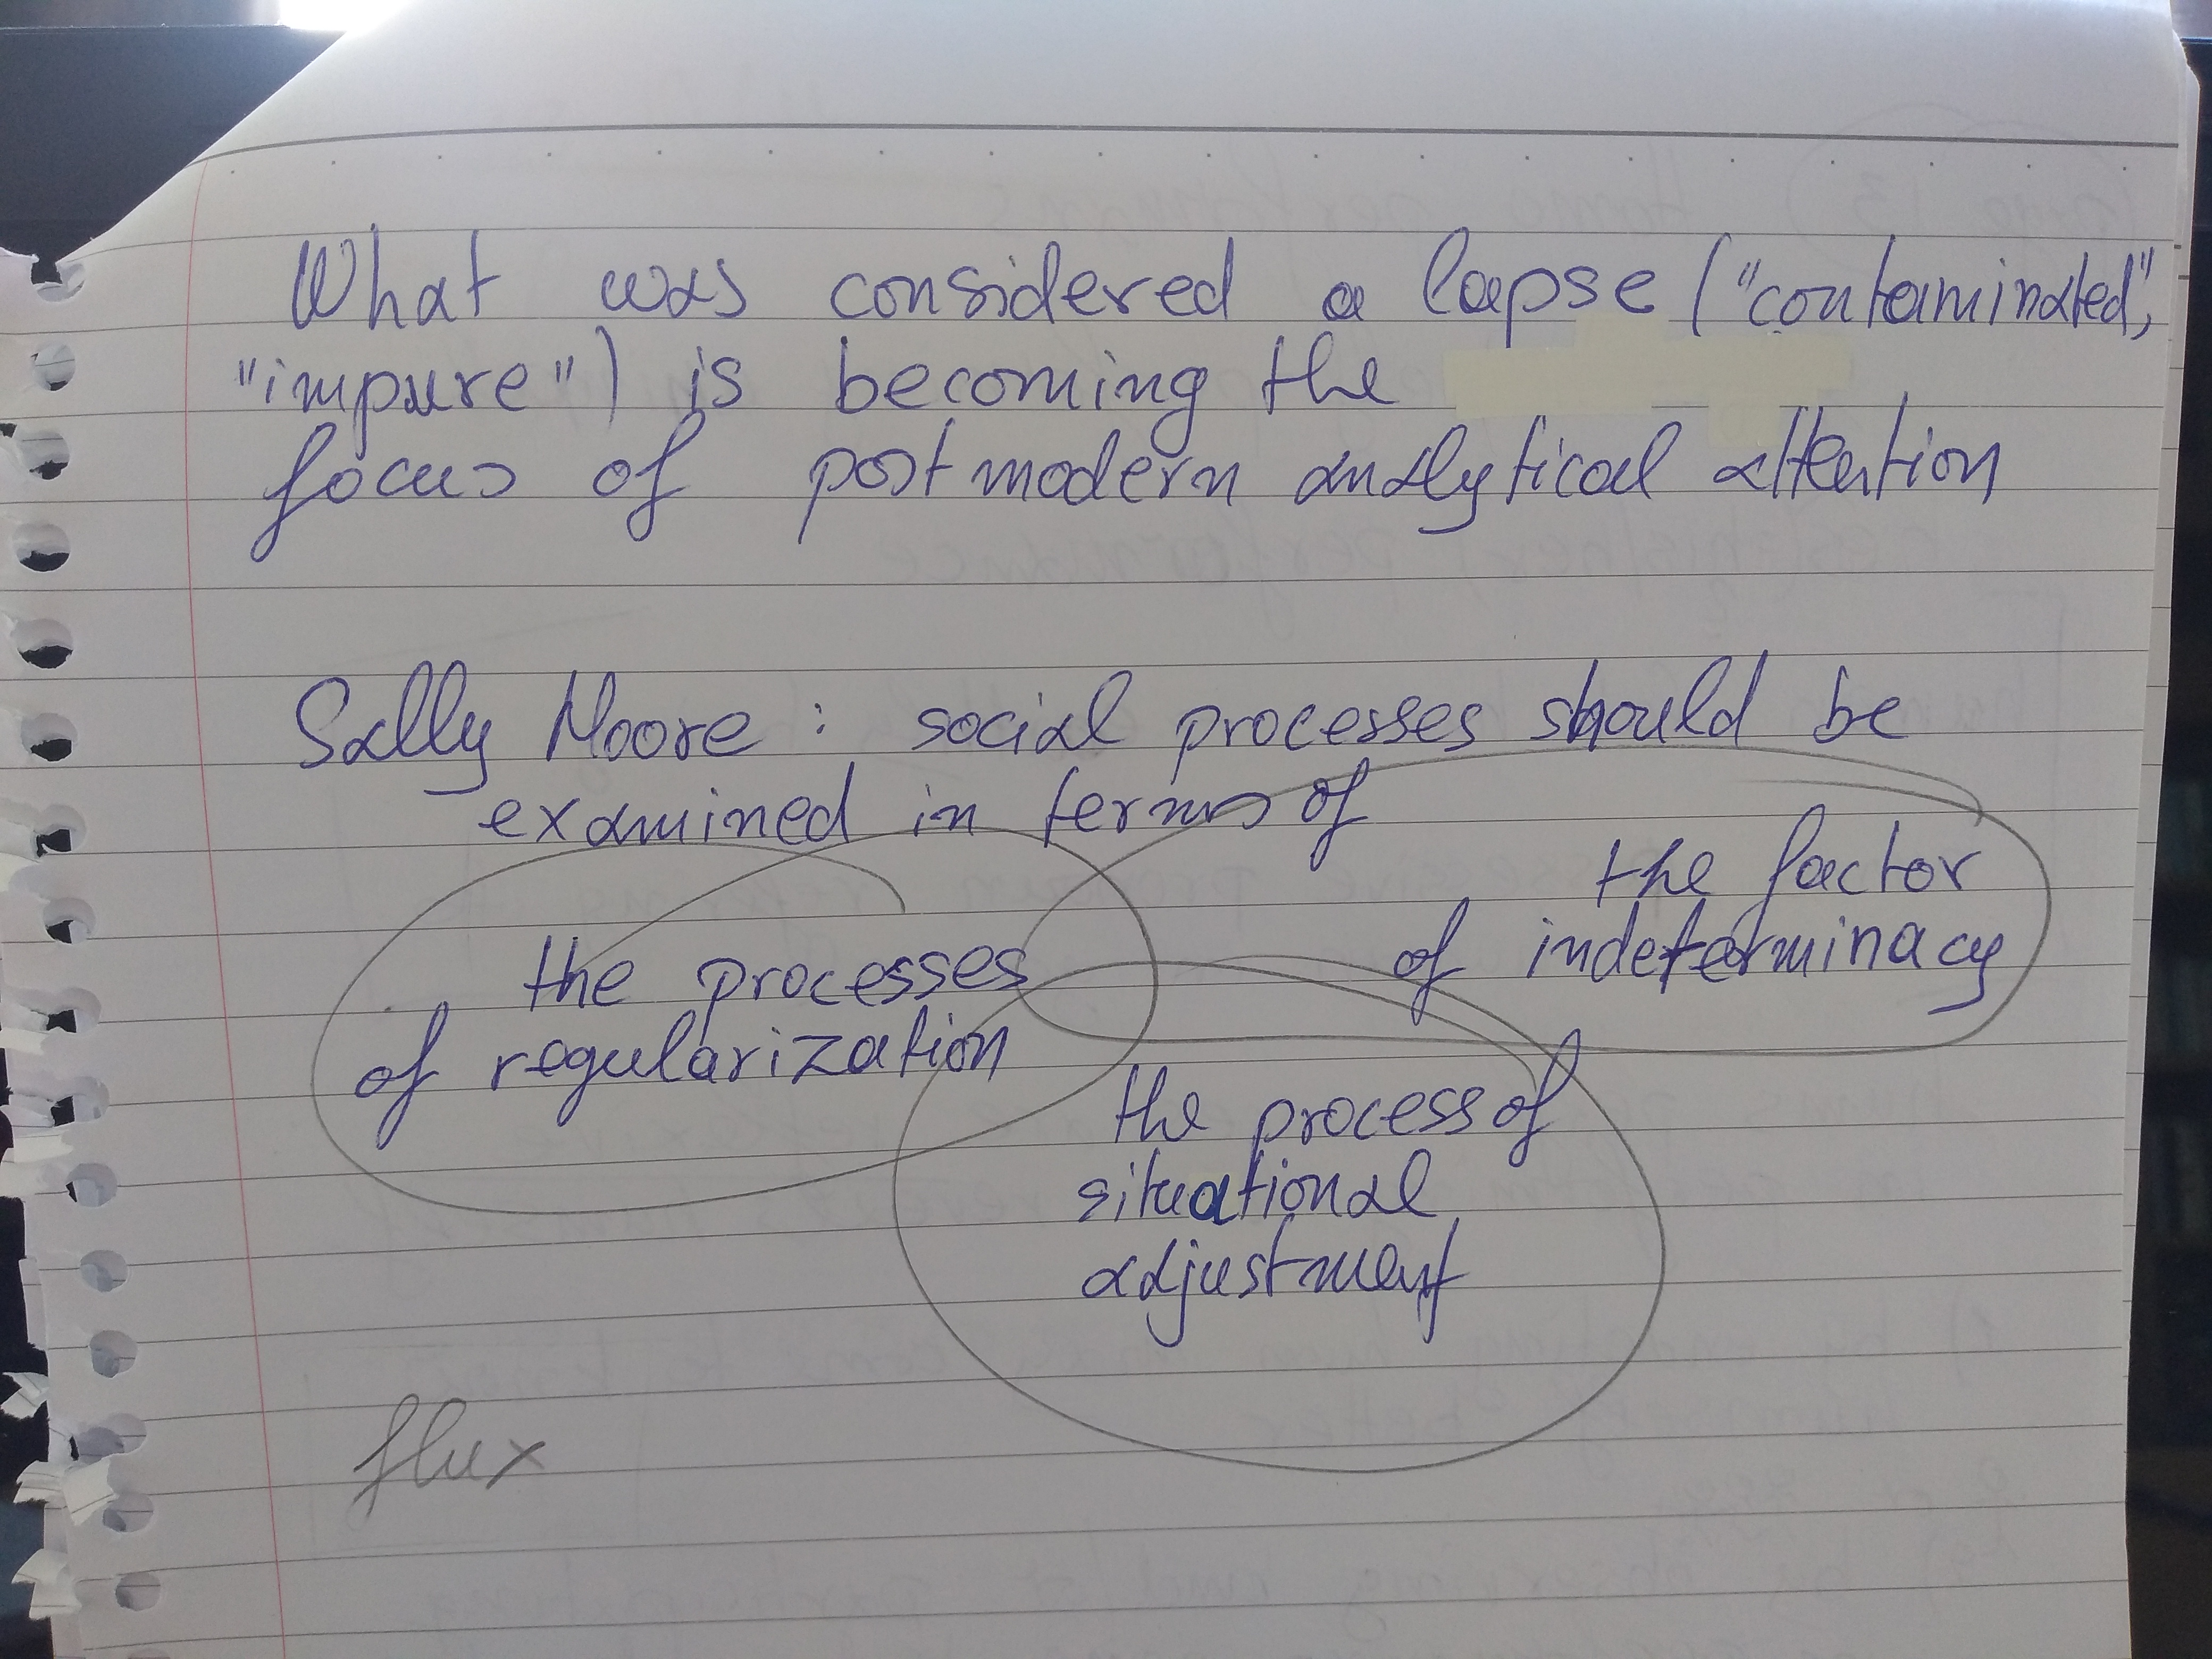 What was considered a lapse ("contaminated",
"impure") is becoming the
focus of postmodern analytical attention
Sally Moore: social processes should be
examined in terms of
the factor
of indeterminacy
the processes
of regularization
the process of
situational
adjustment
flux